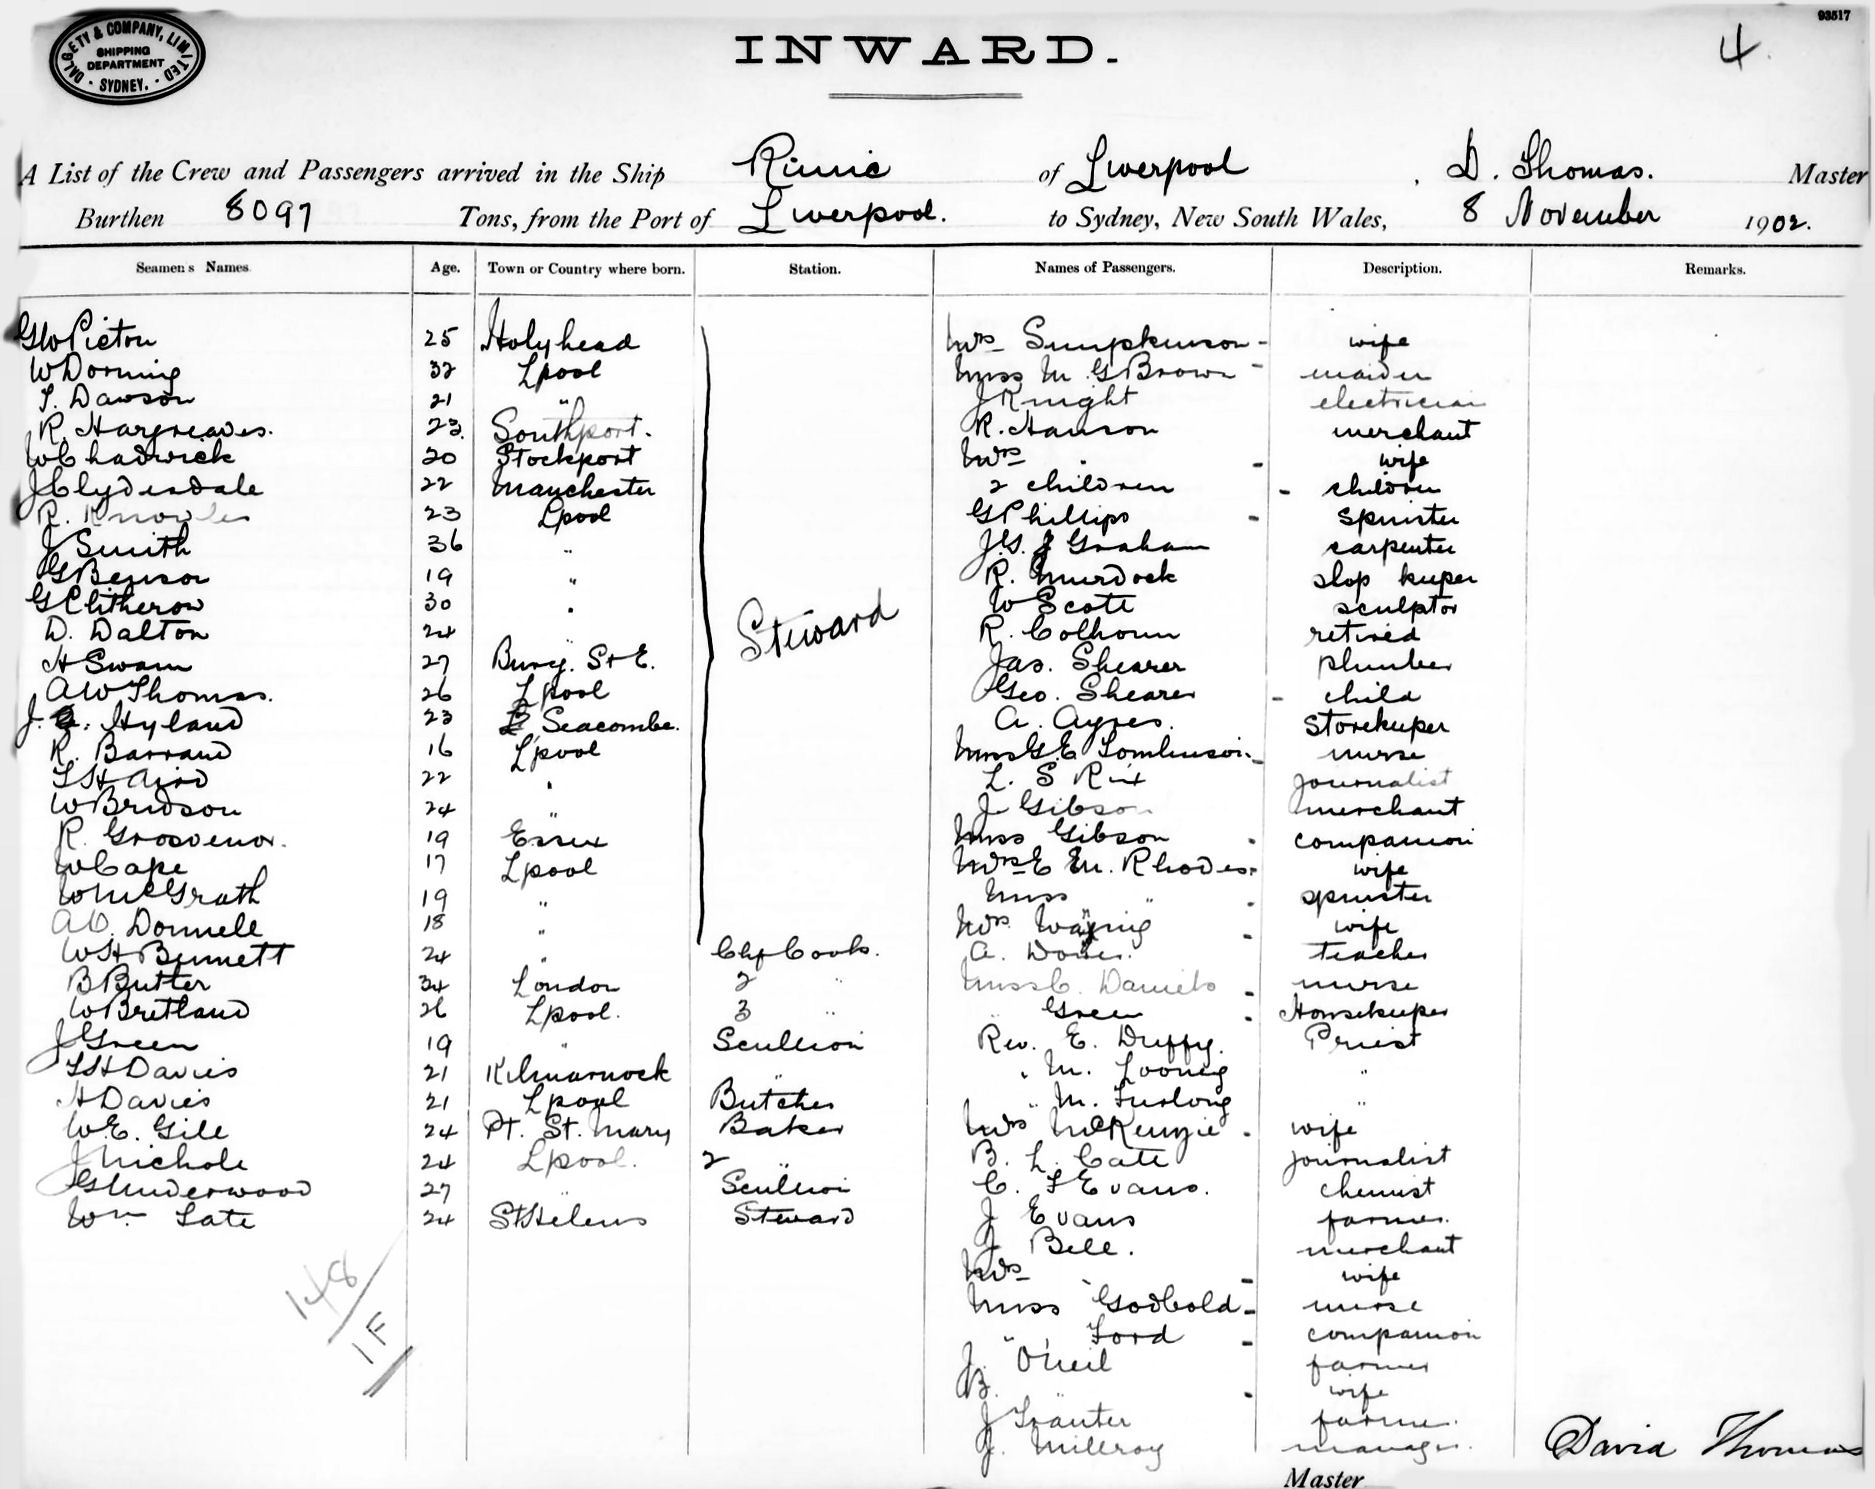 93517
DALGETY & COMPANY, LIMITED
SHIPPING
DEPARTMENT
SYDNEY.
INWARD.
4.
A List of the Crew and Passengers arrived in the Ship Runic of Liverpool, D. Thomas. Master
Burthen 8097 Tons, from the Port of Liverpool. to Sydney, New South Wales, 8 November 1902.
Seamen's Names Age. Town or Country where born. Station. Names of Passengers. Description. Remarks.
GW Picton 25 Holyhead Mrs Simpkinson - wife
W Dorning 32 Lpool Miss M. G Brown - maiden
T. Dawson 21 " J Knight electrician
R. Hargreaves. 23. Southport. R. Hanson merchant
W Chadwick 20 Stockport Mrs " - wife
J Clydesdale 22 Manchester 2 children - children
R. Knowles 23 Lpool G Phillips - Spinster
J Smith 36 " J. G. Graham carpenter
G Benson 19 " R. Murdock slop keeper
G Clitherow 30 " W Scott sculptor
D. Dalton 24 " Steward R. Colhoun retired
H Swain 27 Bury. St E. Jas. Shearer plumber
A W Thomas. 26 Lpool Geo. Shearer - child
J. Hyland 23 Seacombe. A. Ayres. Storekeeper
R. Barrand 16 L'pool Miss G. E Tomlinson. - nurse
T S H Aird 22 " L. S Rix journalist
W Bridson 24 " J. Gibson merchant
R. Grosvenor. 19 Essex Miss Gibson - companion
W Cape 17 Lpool Mrs E M. Rhodes. - wife
W McGrath 19 " Miss " - spinster
A O. Donnell 18 " Mrs - wife
W H Bennett 24 " Chf Cook. A. teacher
B Butter 34 London 2 " Miss C. Daniels - nurse
W Bretland 26 Lpool. 3 " " Green - Housekeeper
J Green 19 " Scullion Rev. E. Duffy. Priest
T S H Davies 21 Kilmarnock " " M. Looney "
H Davies 21 Lpool Butcher " M. Furlong "
W. E. Gill 24 Pt. St. Mary Baker Mrs McKenzie - wife
J Nichole 24 Lpool. 2 " B. L. Cate journalist
G Underwood 27 " Scullion C. F Evans. chemist
Wm Tate 24 St Helens Steward J Evans farmer.
J Bell. merchant
Mrs " - wife
Miss Godbold - nurse
" Ford - companion
J. O'Neil farmer
B. " - wife
J Tranter farmer.
J. Millroy manager.
148
1F
David Thomas
Master